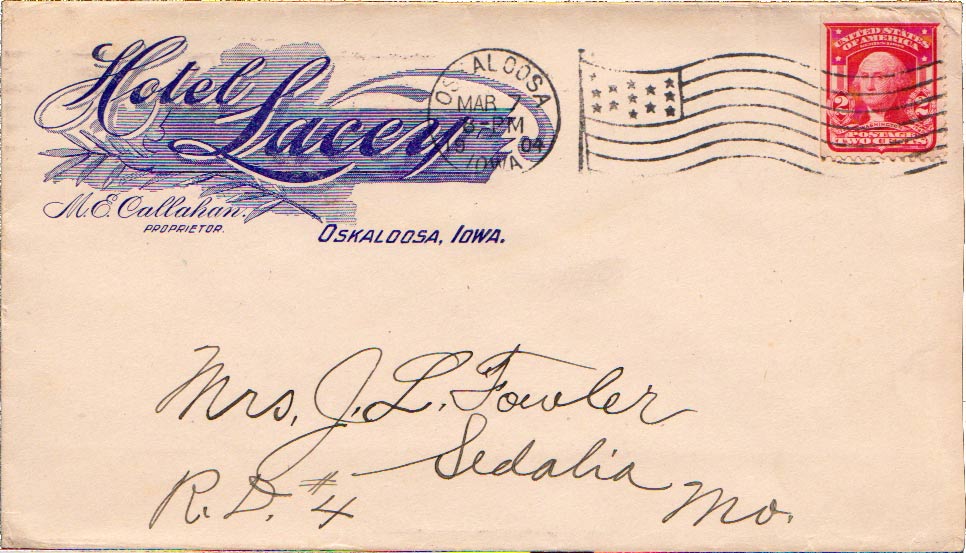 Hotel Lacey
M. E. Callahan.
PROPRIETOR.
OSKALOOSA, IOWA.
OSKALOOSA
MAR 7
PM
04
IOWA
UNITED STATES
OF AMERICA
2 2
POSTAGE
TWO CENTS
Mrs. J. L. Fowler
Sedalia
R. D. #4 Mo.